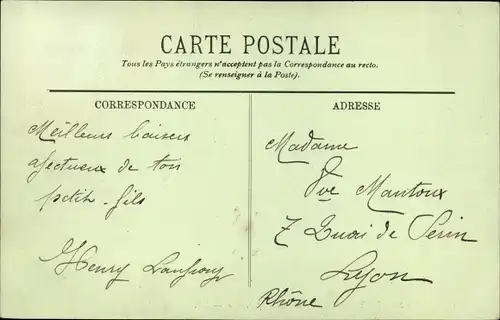 CARTE POSTALE
Tous les Pays étrangers n'acceptent pas la Correspondance au recto.
(Se renseigner à la Poste).
CORRESPONDANCE
Meilleurs baisers
afectueux de ton
petit-fils
Henry
ADRESSE
Madame
Vve Mantoux
7 Quai de Serin
Lyon
Rhône